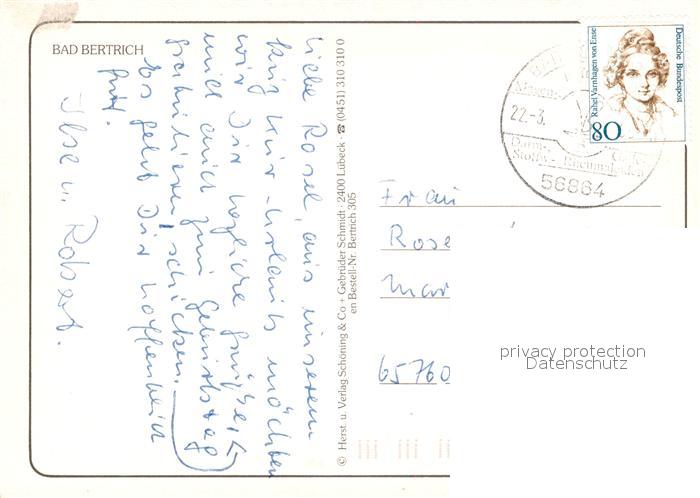 BAD BERTRICH
Liebe Rosel, aus unserem
Kurz Kur-Urlaub möchten
wir Dir herzliche Grüße (+
mich auch zum Geburtstag
gratulieren) schicken.
Es geht Dir hoffentlich
gut.
Ilse u. Robert.
© Herst. u. Verlag Schöning & Co + Gebrüder Schmidt · 2400 Lübeck ☎ (0451) 310 310 0
en Bestell-Nr. Bertrich 305
Deutsche Bundespost
Rahel Varnhagen von Ense
80
Magen-
22.-3.
Darm-
Stoffw.-
Rheumaleiden
56864
Frau
Rose
Mar
65760
privacy protection
Datenschutz